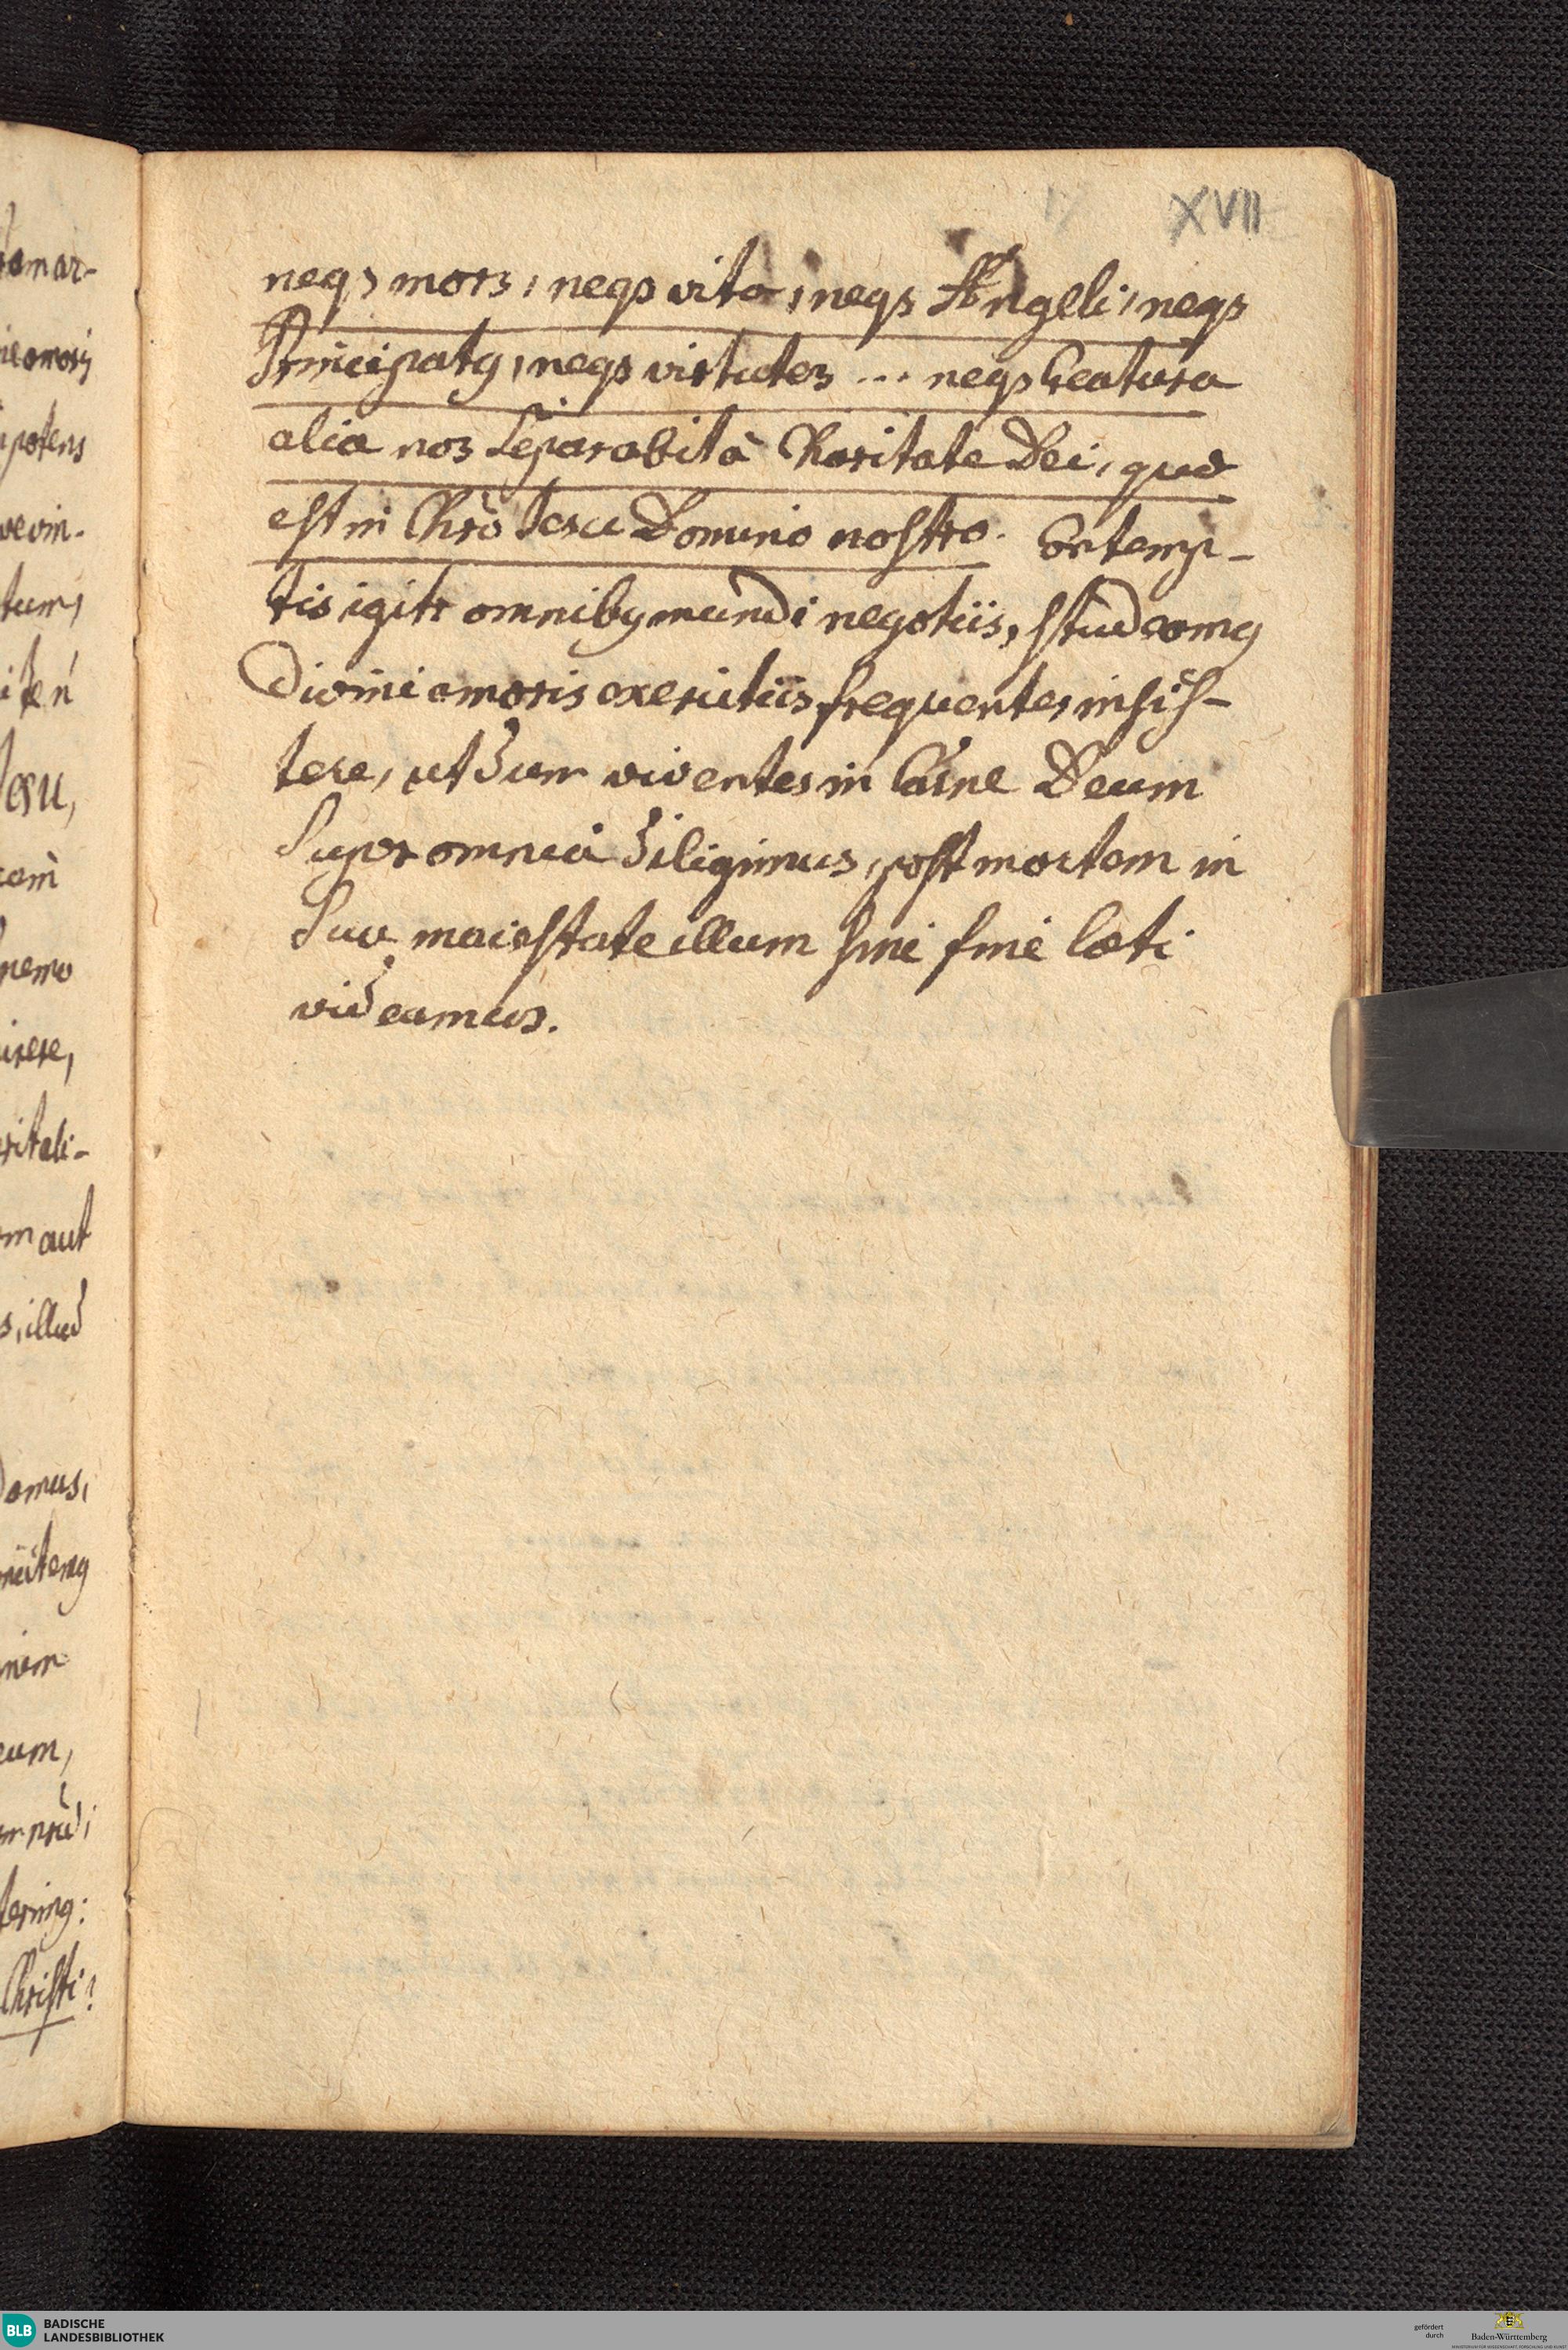 XVII
neqȝ mors, neqȝ vita, neqȝ Angeli, neqȝ
Principatꝰ, neqȝ virtutes ... neqȝ Creatura
alia nos Separabit à Charitate Dei, quæ
est in Chrō Iesu Domino nostro. Contemp-
tis igitr omnibꝰ mundi negotiis, studeamꝰ
Divini amoris exercitiis frequenter insis-
tere, ut dum viventes in Carne Deum
Super omnia diligimus, post mortem in
Sua maiestate illum sine fine læti
videamus.
amar-
amoris
potens
tum,
Iesu,
nemo
aut
illud
eum,
Christi?
BLB BADISCHE
LANDESBIBLIOTHEK
gefördert
durch
Baden-Württemberg